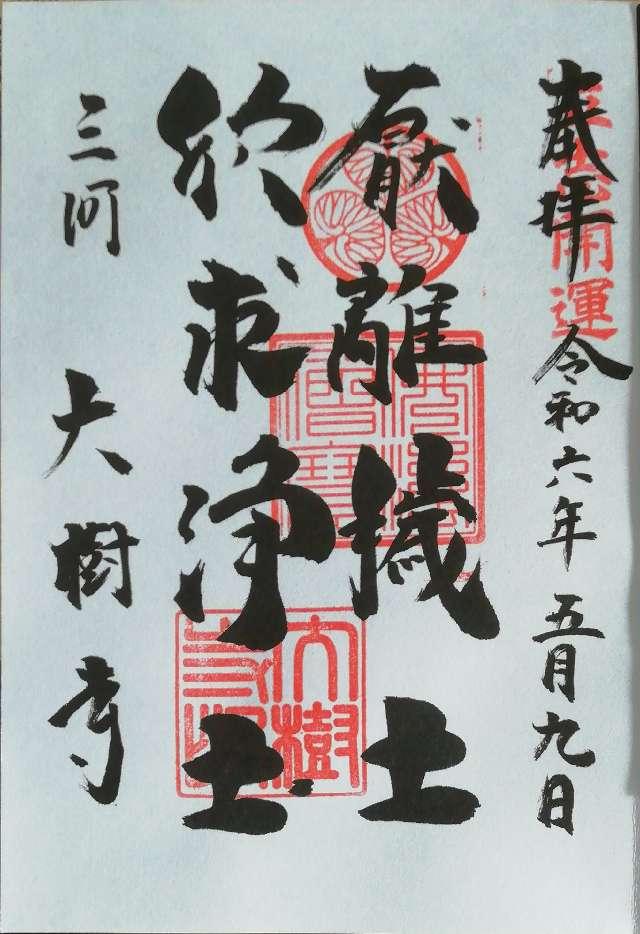 奉拝 令和六年 五月九日
開運
厭離穢土
欣求浄土
三河 大樹寺